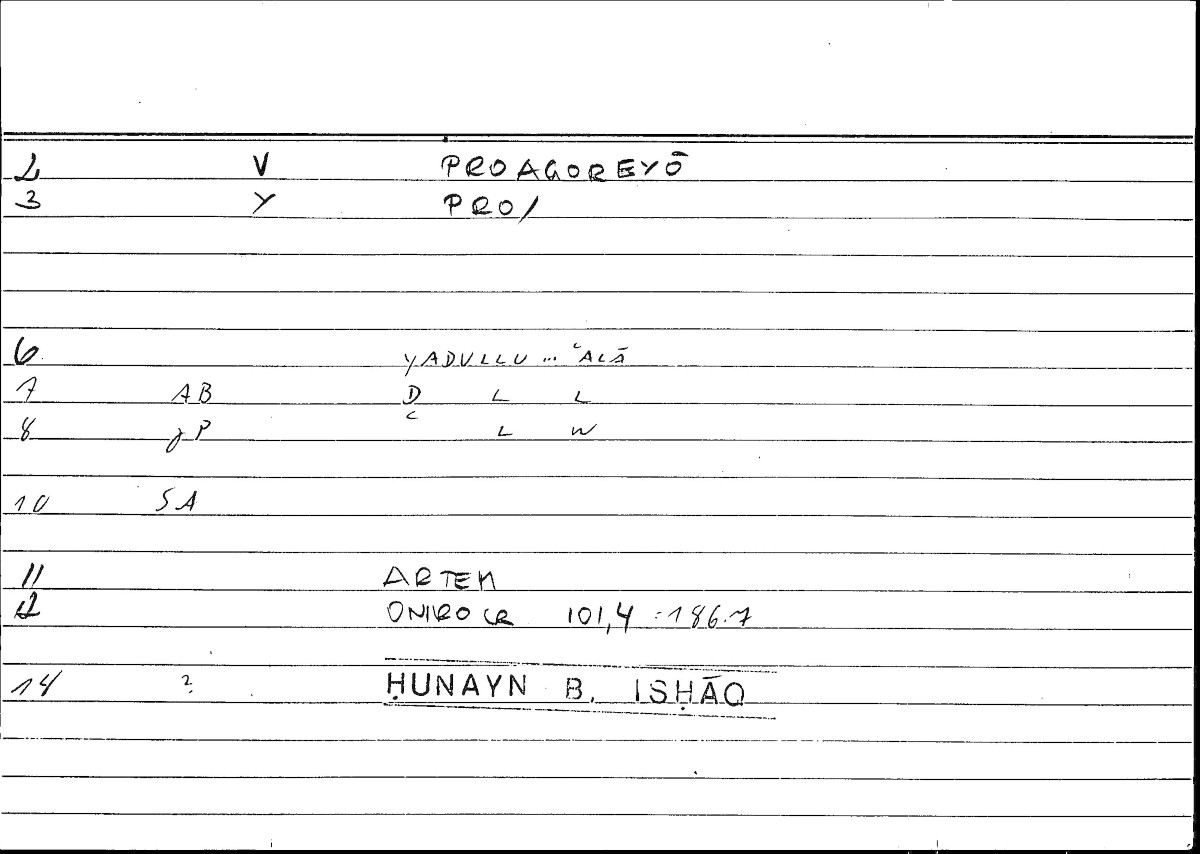 2 V PROAGOREYŌ
3 Y PRO/
6 YADULLU ... ʿALĀ
7 AB D L L
8 gP ʿ L W
10 SA
11 ARTEM
12 ONIROCR 101,4 : 186.7
14 ? ḤUNAYN B. ISḤĀQ